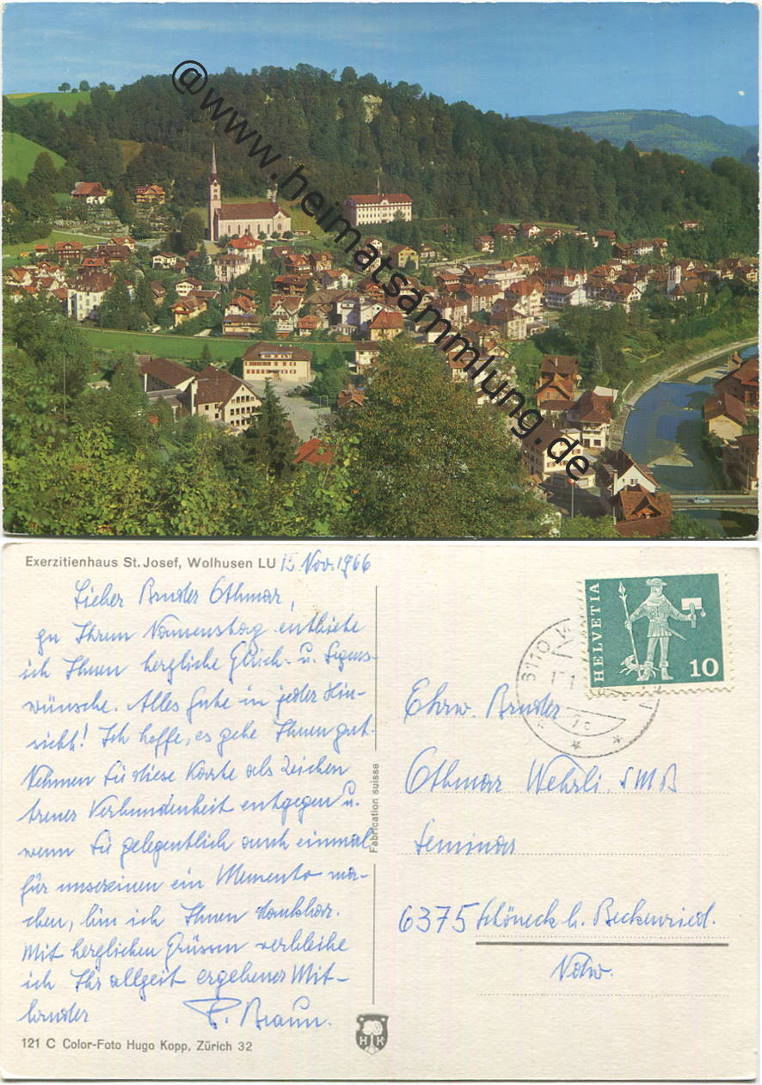 @www.heimatsammlung.de
Exerzitienhaus St. Josef, Wolhusen LU 15 Nov. 1966
Lieber Bruder Othmar,
zu Ihrem Namenstag entbiete
ich Ihnen herzliche Glück- u. Segens-
wünsche. Alles Gute in jeder Hin-
sicht! Ich hoffe, es gehe Ihnen gut.
Nehmen Sie diese Karte als Zeichen
treuer Verbundenheit entgegen u.
wenn Sie gelegentlich auch einmal
für unsereinen ein Memento ma-
chen, bin ich Ihnen dankbar.
Mit herzlichen Grüssen verbleibe
ich Ihr allzeit ergebener Mit-
bruder P. Braun.
121 C Color-Foto Hugo Kopp, Zürich 32
Fabrication suisse
HK
HELVETIA
10
6110
Ehrw. Bruder
Othmar Wehrli SMB
Seminar
6375 Schöneck b. Beckenried.
Ndw.